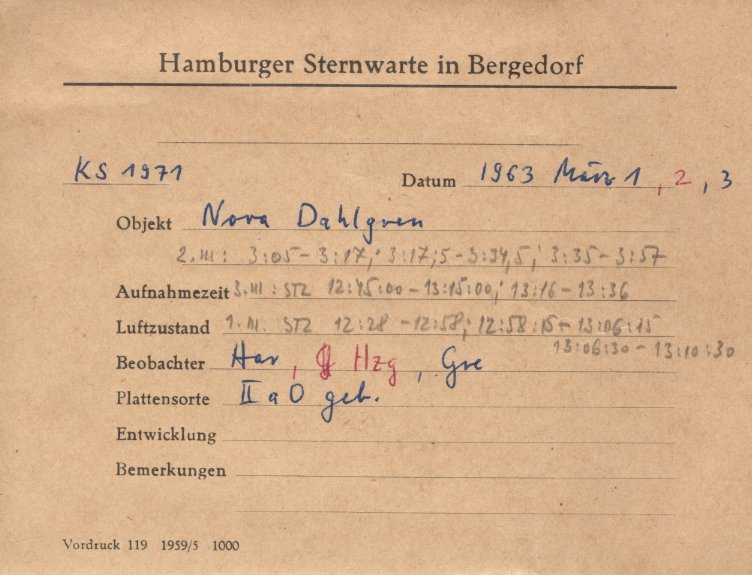 Hamburger Sternwarte in Bergedorf
KS 1971 Datum 1963 März 1, 2, 3
Objekt Nova Dahlgren
2. III: 3:05 - 3:17; 3:17,5 - 3:34,5; 3:35 - 3:57
Aufnahmezeit 3. III: STZ 12:45:00 - 13:15:00; 13:16 - 13:36
Luftzustand 1. III. STZ 12:28 - 12:58; 12:58:15 - 13:06:15
13:06:30 - 13:10:30
Beobachter Hav, Hzg, Gre
Plattensorte II a O geb.
Entwicklung
Bemerkungen
Vordruck 119 1959/5 1000